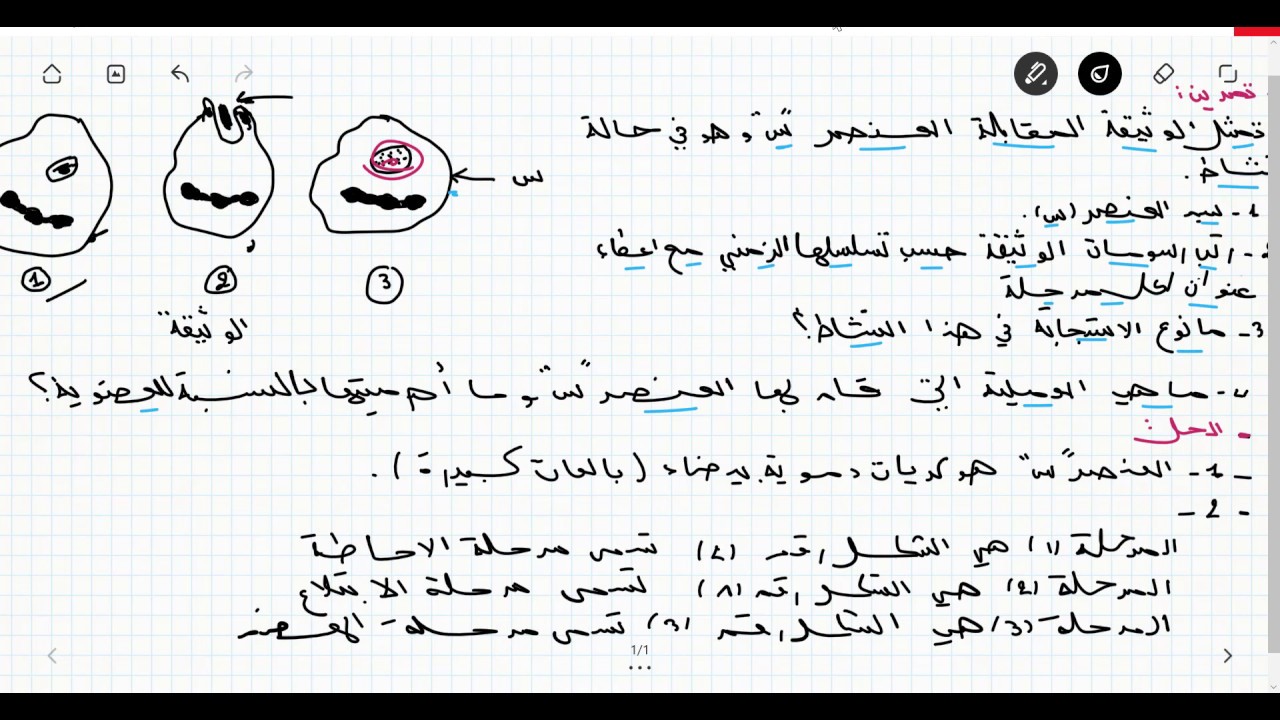 تمرين:
تمثل الوثيقة المقابلة العنصر "س" وهو في حالة
نشاط.
1- سم العنصر (س).
2- رتب رسومات الوثيقة حسب تسلسلها الزمني مع اعطاء
عنوان لكل مرحلة
3- ما نوع الاستجابة في هذا النشاط؟
4- ما هي العملية التي قام بها العنصر "س" وما أهميتها بالنسبة للعضوية؟
س
1
2
3
الوثيقة
- الحل:
- 1- العنصر "س" هو كريات دموية بيضاء (بالعات كبيرة).
- 2 -
المرحلة (1) هي الشكل رقم (2) تسمى مرحلة الاحاطة
المرحلة (2) هي الشكل رقم (1) تسمى مرحلة الابتلاع
المرحلة (3) هي الشكل رقم (3) تسمى مرحلة الهضم
1/1